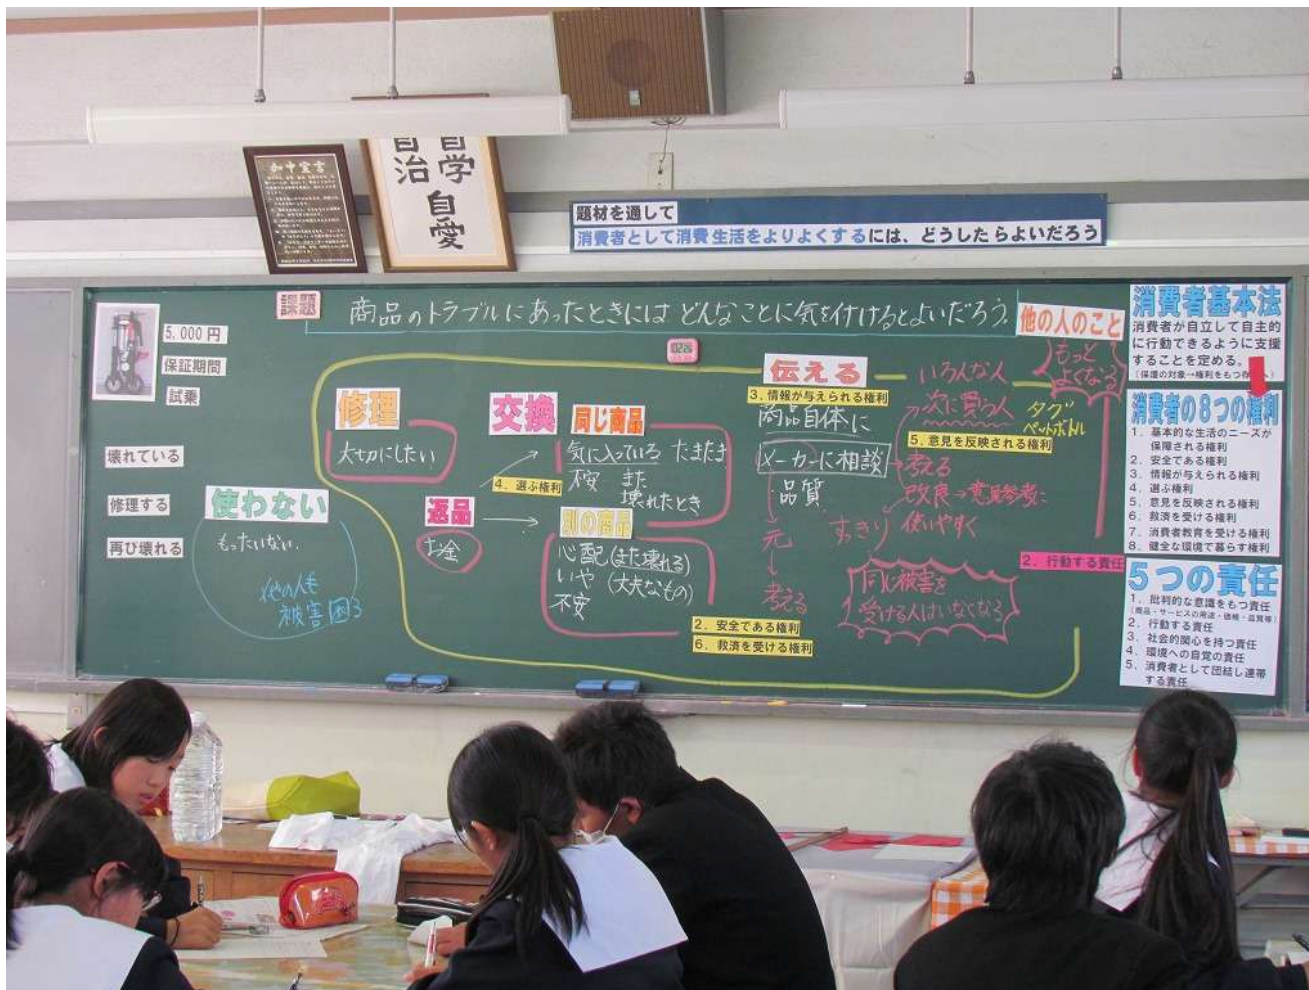 加中宣言
自学
自治
自愛
題材を通して
消費者として消費生活をよりよくするには、どうしたらよいだろう
課題
商品のトラブルにあったときにはどんなことに気を付けるとよいだろう。
5,000円
保証期間
試乗
壊れている
修理する
再び壊れる
使わない
もったいない.
他の人も
被害困る
修理
大切にしたい
返品
お金
交換
4. 選ぶ権利
同じ商品
気に入っている たまたま
不安 また
壊れたとき
別の商品
心配(また壊れる)
いや (丈夫なもの)
不安
2. 安全である権利
6. 救済を受ける権利
伝える
3. 情報が与えられる権利
商品自体に
メーカーに相談
品質
元
考える
いろんな人
次に買う人
タグ
ペットボトル
5. 意見を反映される権利
考える
改良→意見参考に
すっきり 使いやすく
同じ被害を
受ける人はいなくなる
他の人のこと
もっと
よくなる
2. 行動する責任
消費者基本法
消費者が自立して自主的
に行動できるように支援
することを定める。
消費者の8つの権利
1. 基本的な生活のニーズが
保障される権利
2. 安全である権利
3. 情報が与えられる権利
4. 選ぶ権利
5. 意見を反映される権利
6. 救済を受ける権利
7. 消費者教育を受ける権利
8. 健全な環境で暮らす権利
5つの責任
1. 批判的な意識をもつ責任
(商品・サービスの用途・価格・品質等)
2. 行動する責任
3. 社会的関心を持つ責任
4. 環境への自覚の責任
5. 消費者として団結し連帯
する責任